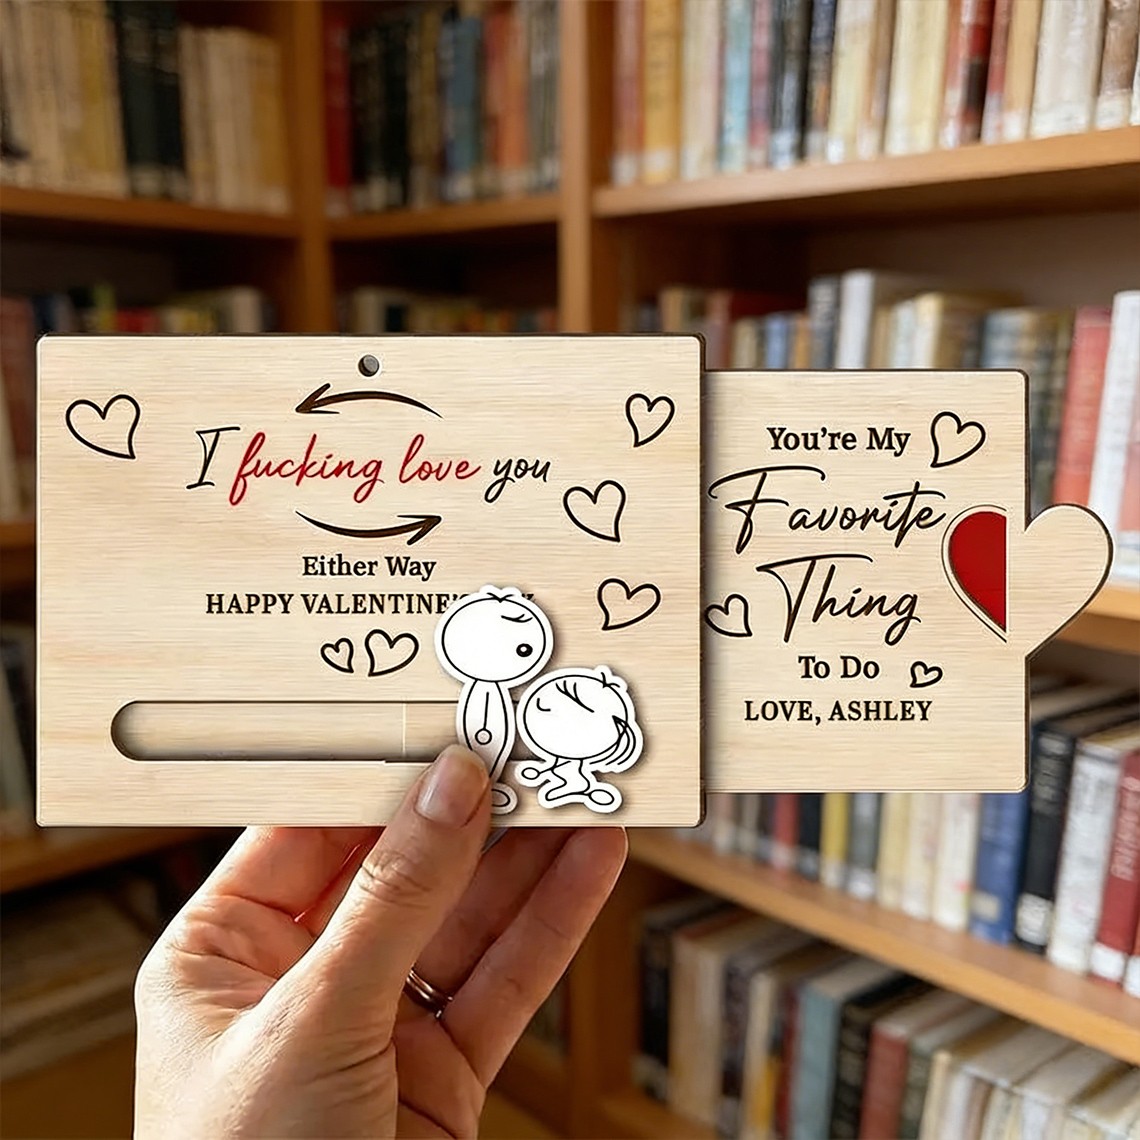 I fucking love you
Either Way
HAPPY VALENTINE'S
You're My
Favorite
Thing
To Do
LOVE, ASHLEY